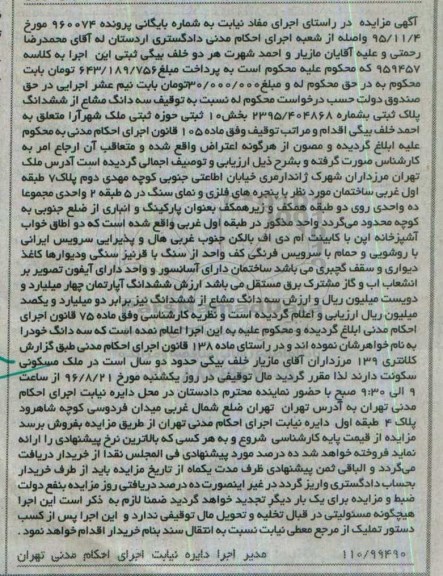 آگهی مزایده در راستای اجرای مفاد نیابت به شماره بایگانی پرونده ۹۶۰۰۷۴ مورخ
۹۵/۱۱/۴ واصله از شعبه اجرای احکام مدنی دادگستری اردستان له آقای محمدرضا
رحمتی و علیه آقایان مازیار و احمد شهرت هر دو خلف بیگی ثبتی این اجرا به کلاسه
۹۵۹۴۵۷ که محکوم علیه محکوم است به پرداخت مبلغ ۶۴۳/۱۸۹/۷۵۶ تومان بابت
محکوم به در حق محکوم له و مبلغ ۳۰/۰۰۰/۰۰۰تومان بابت نیم عشر اجرایی در حق
صندوق دولت حسب درخواست محکوم له نسبت به توقیف سه دانگ مشاع از ششدانگ
پلاک ثبتی بشماره ۲۳۹۵/۴۰۴۸۶۸ بخش۱۰ ثبتی حوزه ثبتی ملک شهرآرا متعلق به
احمد خلف بیگی اقدام و مراتب توقیف وفق ماده ۱۰۵ قانون اجرای احکام مدنی به محکوم
علیه ابلاغ گردیده و مصون از هرگونه اعتراض واقع شده و متعاقب آن ارجاع امر به
کارشناس صورت گرفته و بشرح ذیل ارزیابی و توصیف اجمالی گردیده است آدرس ملک
تهران مرزداران شهرک ژاندارمری خیابان اطاعتی جنوبی کوچه مهدی دوم پلاک۷ طبقه
اول غربی ساختمان مورد نظر با پنجره های فلزی و نمای سنگ در ۵ طبقه ۲ واحدی مجموعا
ده واحدی روی دو طبقه همکف و زیرهمکف بعنوان پارکینگ و انباری از ضلع جنوبی به
کوچه محدود میگردد واحد مذکور در طبقه اول غربی واقع شده است که دو اطاق خواب
آشپزخانه اپن با کابینت ام دی اف بالکن جنوب غربی هال و پذیرایی سرویس ایرانی
با روشویی و حمام با سرویس فرنگی کف واحد از سنگ با قرنیز سنگی ودیوارها کاغذ
دیواری و سقف گچبری می باشد ساختمان دارای آسانسور و واحد دارای آیفون تصویر بر
انشعاب آب و گاز مشترک برق مستقل می باشد ارزش ششدانگ آپارتمان چهار میلیارد و
دویست میلیون ریال و ارزش سه دانگ مشاع از ششدانگ نیز برابر دو میلیارد و یکصد
میلیون ریال ارزیابی و اعلام گردیده است و نظریه کارشناسی وفق ماده ۷۵ قانون اجرای
احکام مدنی ابلاغ گردیده و محکوم علیه به این اجرا اعلام نمده است که سه دانگ خودرا
به نام خواهرشان نموده اند و در راستای ماده ۱۳۸ قانون اجرای احکام مدنی طبق گزارش
کلانتری ۱۳۹ مرزداران آقای مازیار خلف بیگی حدود دو سال است در ملک مسکونی
سکونت دارند لذا مقرر گردید مال توقیفی در روز یکشنبه مورخ ۹۶/۸/۲۱ از ساعت
۹ الی ۹:۳۰ صبح با حضور نماینده محترم دادستان در محل دایره نیابت اجرای احکام
مدنی تهران به آدرس تهران تهران ضلع شمال غربی میدان فردوسی کوچه شاهرود
پلاک ۴ طبقه اول دایره نیابت اجرای احکام مدنی تهران از طریق مزایده بفروش برسد
مزایده از قیمت پایه کارشناسی شروع و به هر کسی که بالاترین نرخ پیشنهادی را ارائه
نماید فروخته خواهد شد ده درصد مورد پیشنهادی فی المجلس نقدا از خریدار دریافت
میگردد و الباقی ثمن پیشنهادی ظرف مدت یکماه از تاریخ مزایده باید از طرف خریدار
بحساب دادگستری واریز گردد در غیر اینصورت ده درصد دریافتی روز مزایده بنفع دولت
ضبط و مزایده برای یک بار دیگر تجدید خواهد گردید ضمنا لازم به ذکر است این اجرا
هیچگونه مسئولیتی در قبال تخلیه و تحویل مال توقیفی ندارد و این اجرا پس از کسب
دستور تملیک از مرجع معطی نیابت نسبت به انتقال سند بنام خریدار اقدام خواهد نمود.
۱۱۰/۹۹۴۹۰ مدیر اجرا دایره نیابت اجرای احکام مدنی تهران